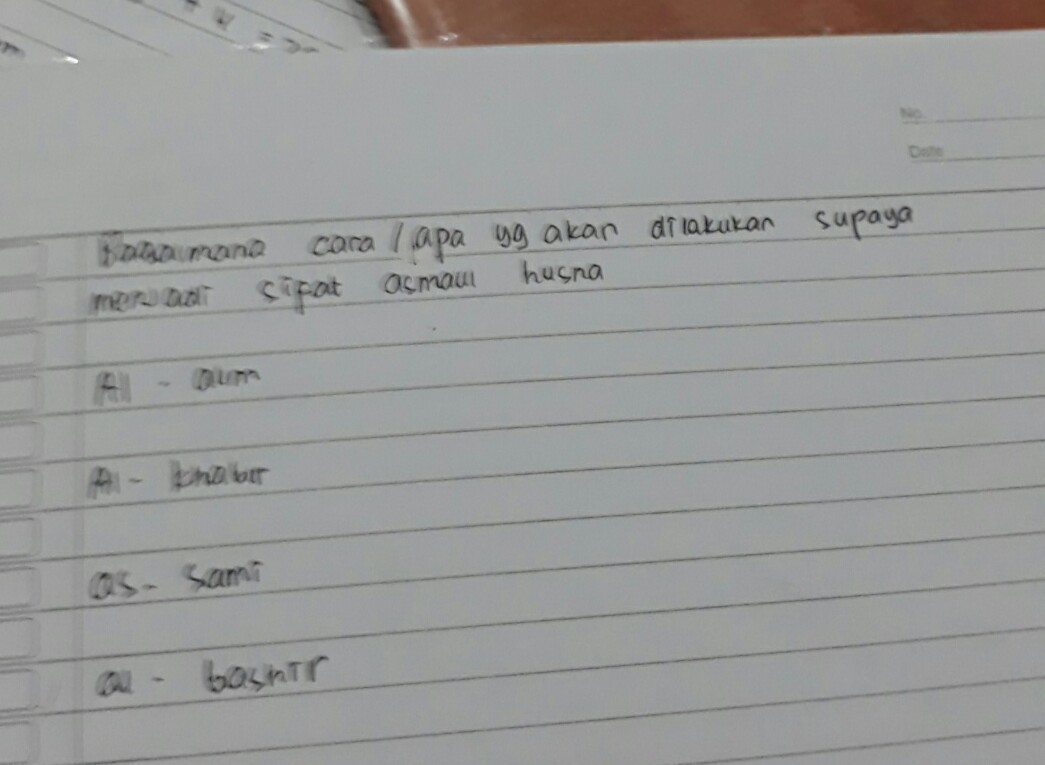 No.
Date
Bagaimana cara / apa yg akan dilakukan supaya
menjadi sifat asmaul husna
Al - alim
Al - khabir
as - sami
al - bashir